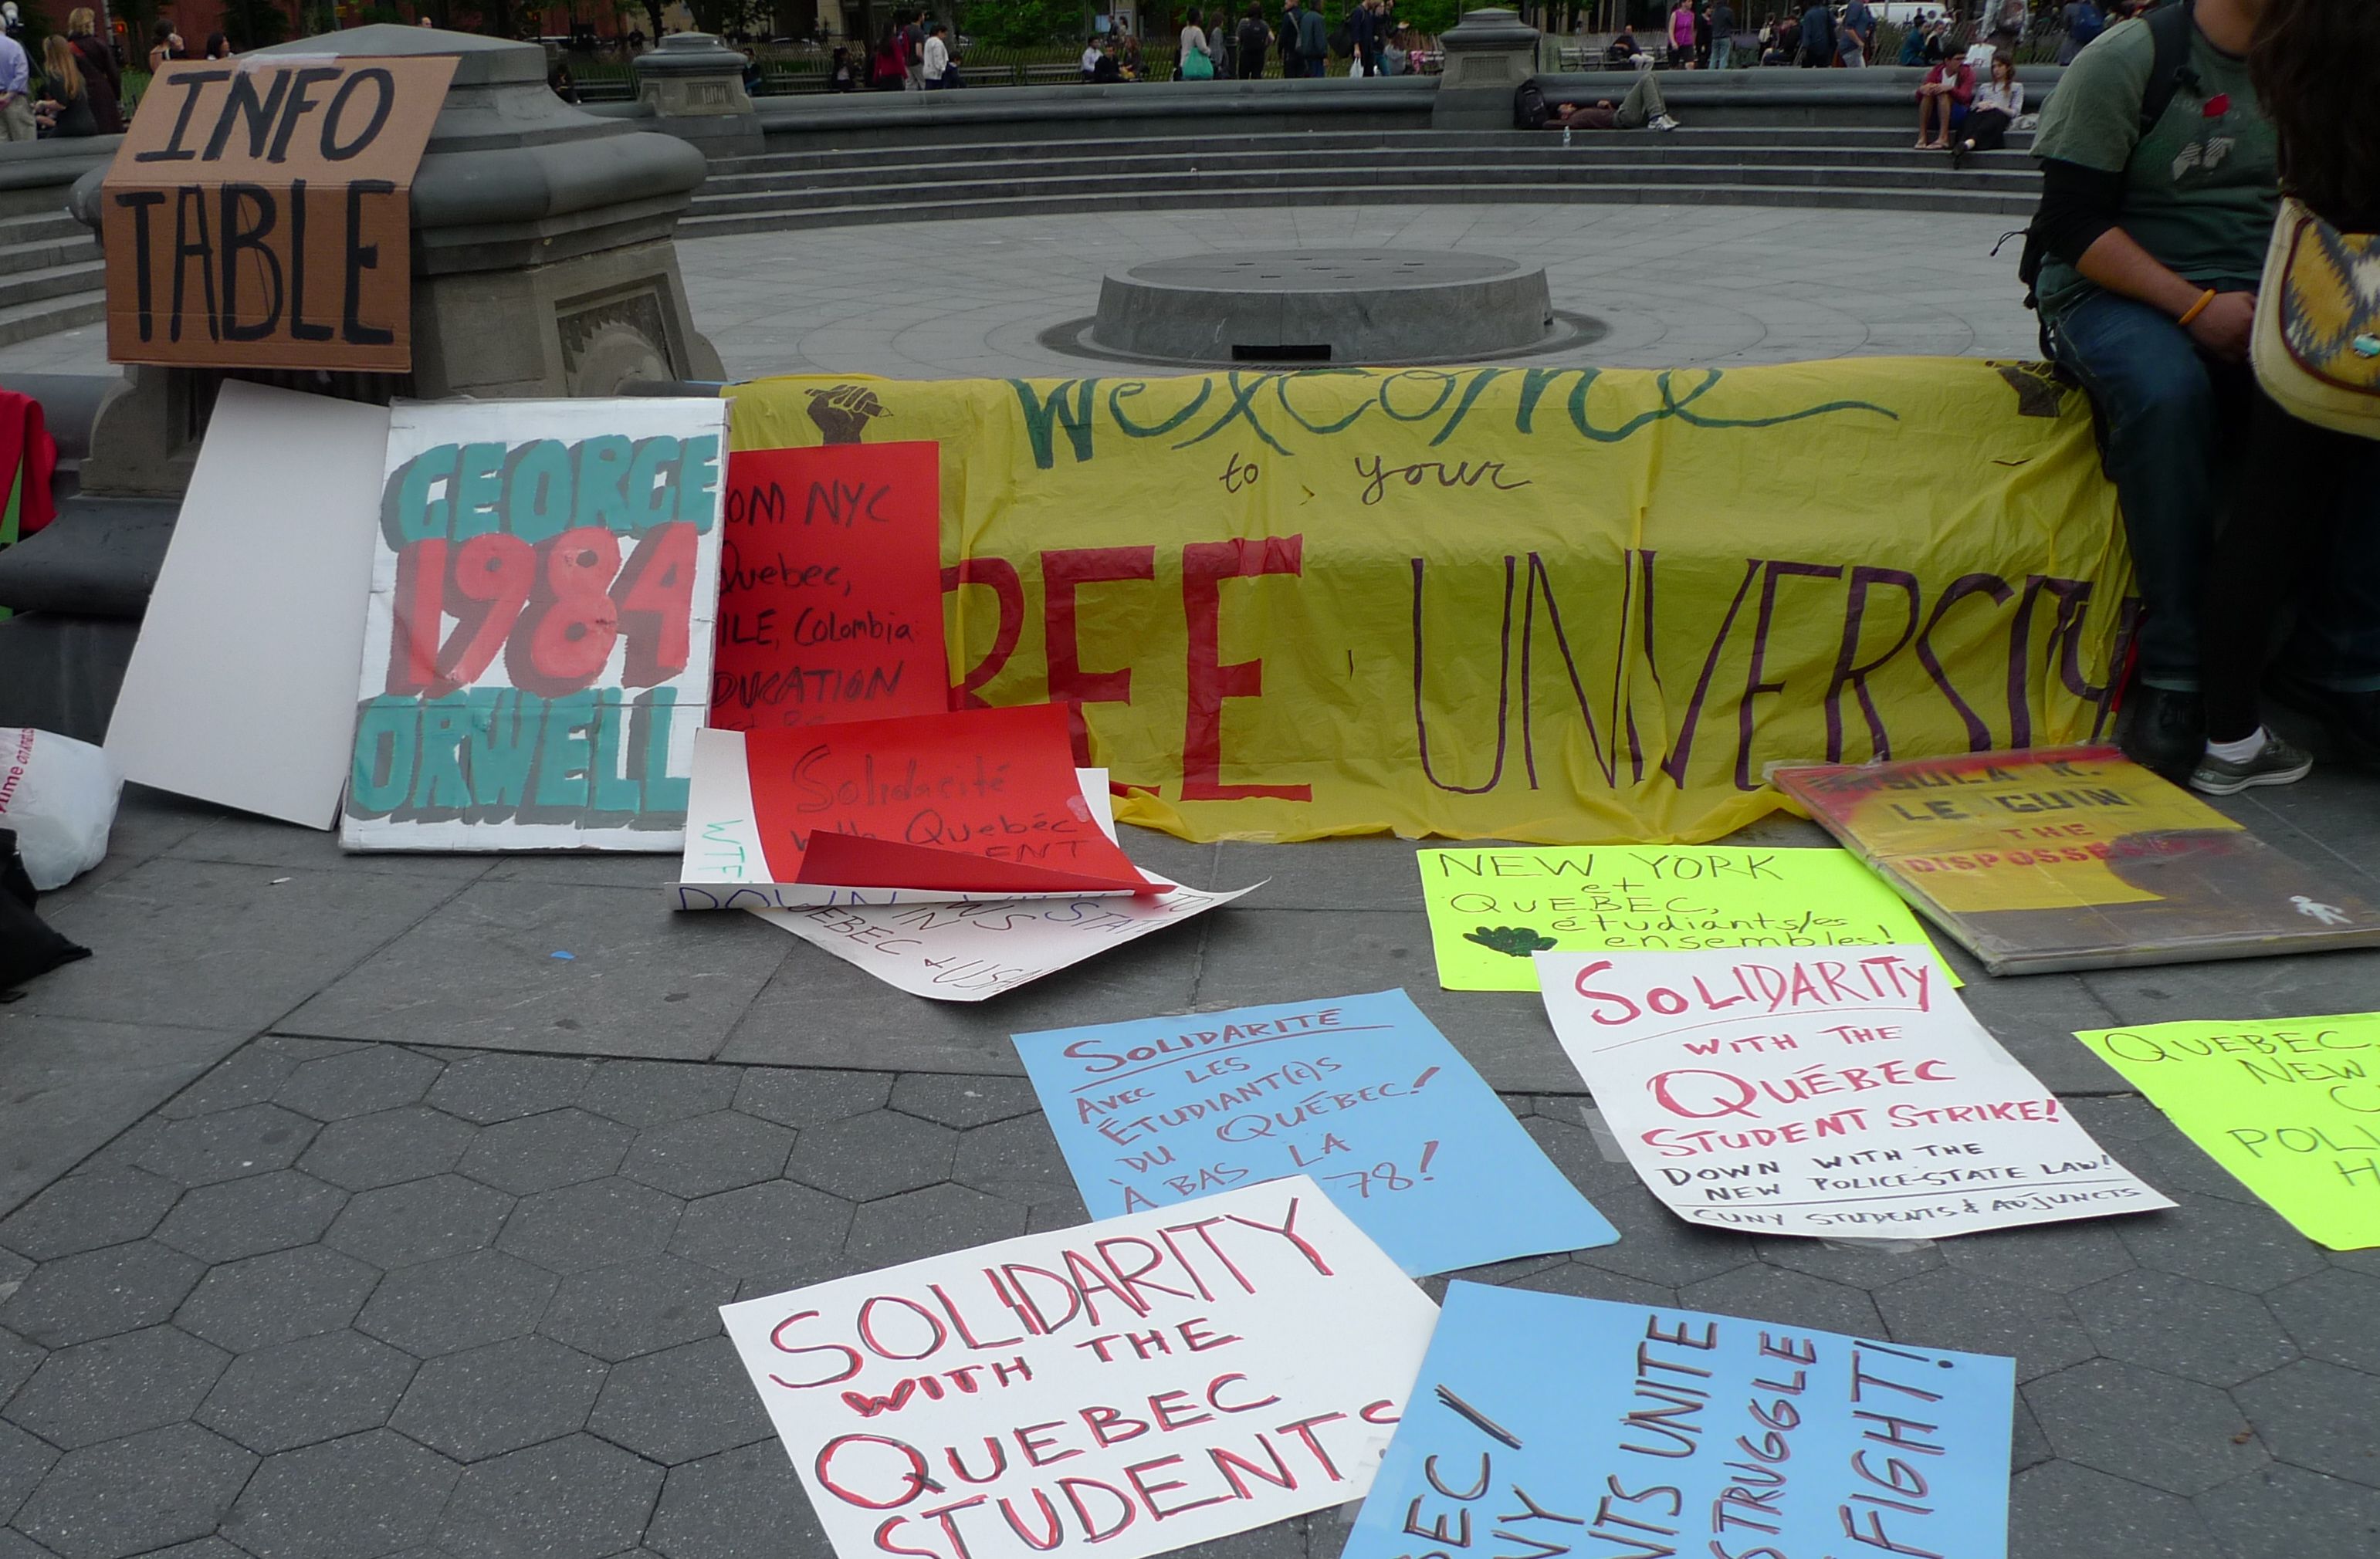 INFO
TABLE
GEORGE
1984
ORWELL
OM NYC
Quebec,
ILE, Colombia
DUCATION
Welcome
to your
REE UNIVERSITY
Solidarité
with Quebéc
ENT
WTF
DOWN
IN
WS
STA
TO
UEBEC & USA
LE GUIN
THE
DISPOSSE
NEW YORK
et
QUEBEC,
étudiants/es
ensembles!
SOLIDARITÉ
AVEC LES
ÉTUDIANT(E)S
DU QUÉBEC!
À BAS LA
78!
SOLIDARITY
WITH THE
QUÉBEC
STUDENT STRIKE!
DOWN WITH THE
NEW POLICE-STATE LAW!
CUNY STUDENTS & ADJUNCTS
QUEBEC
NEW
C
POLI
H
SOLIDARITY
WITH THE
QUEBEC
STUDENTS
BEC/
NY
NTS UNITE
STRUGGLE
FIGHT!